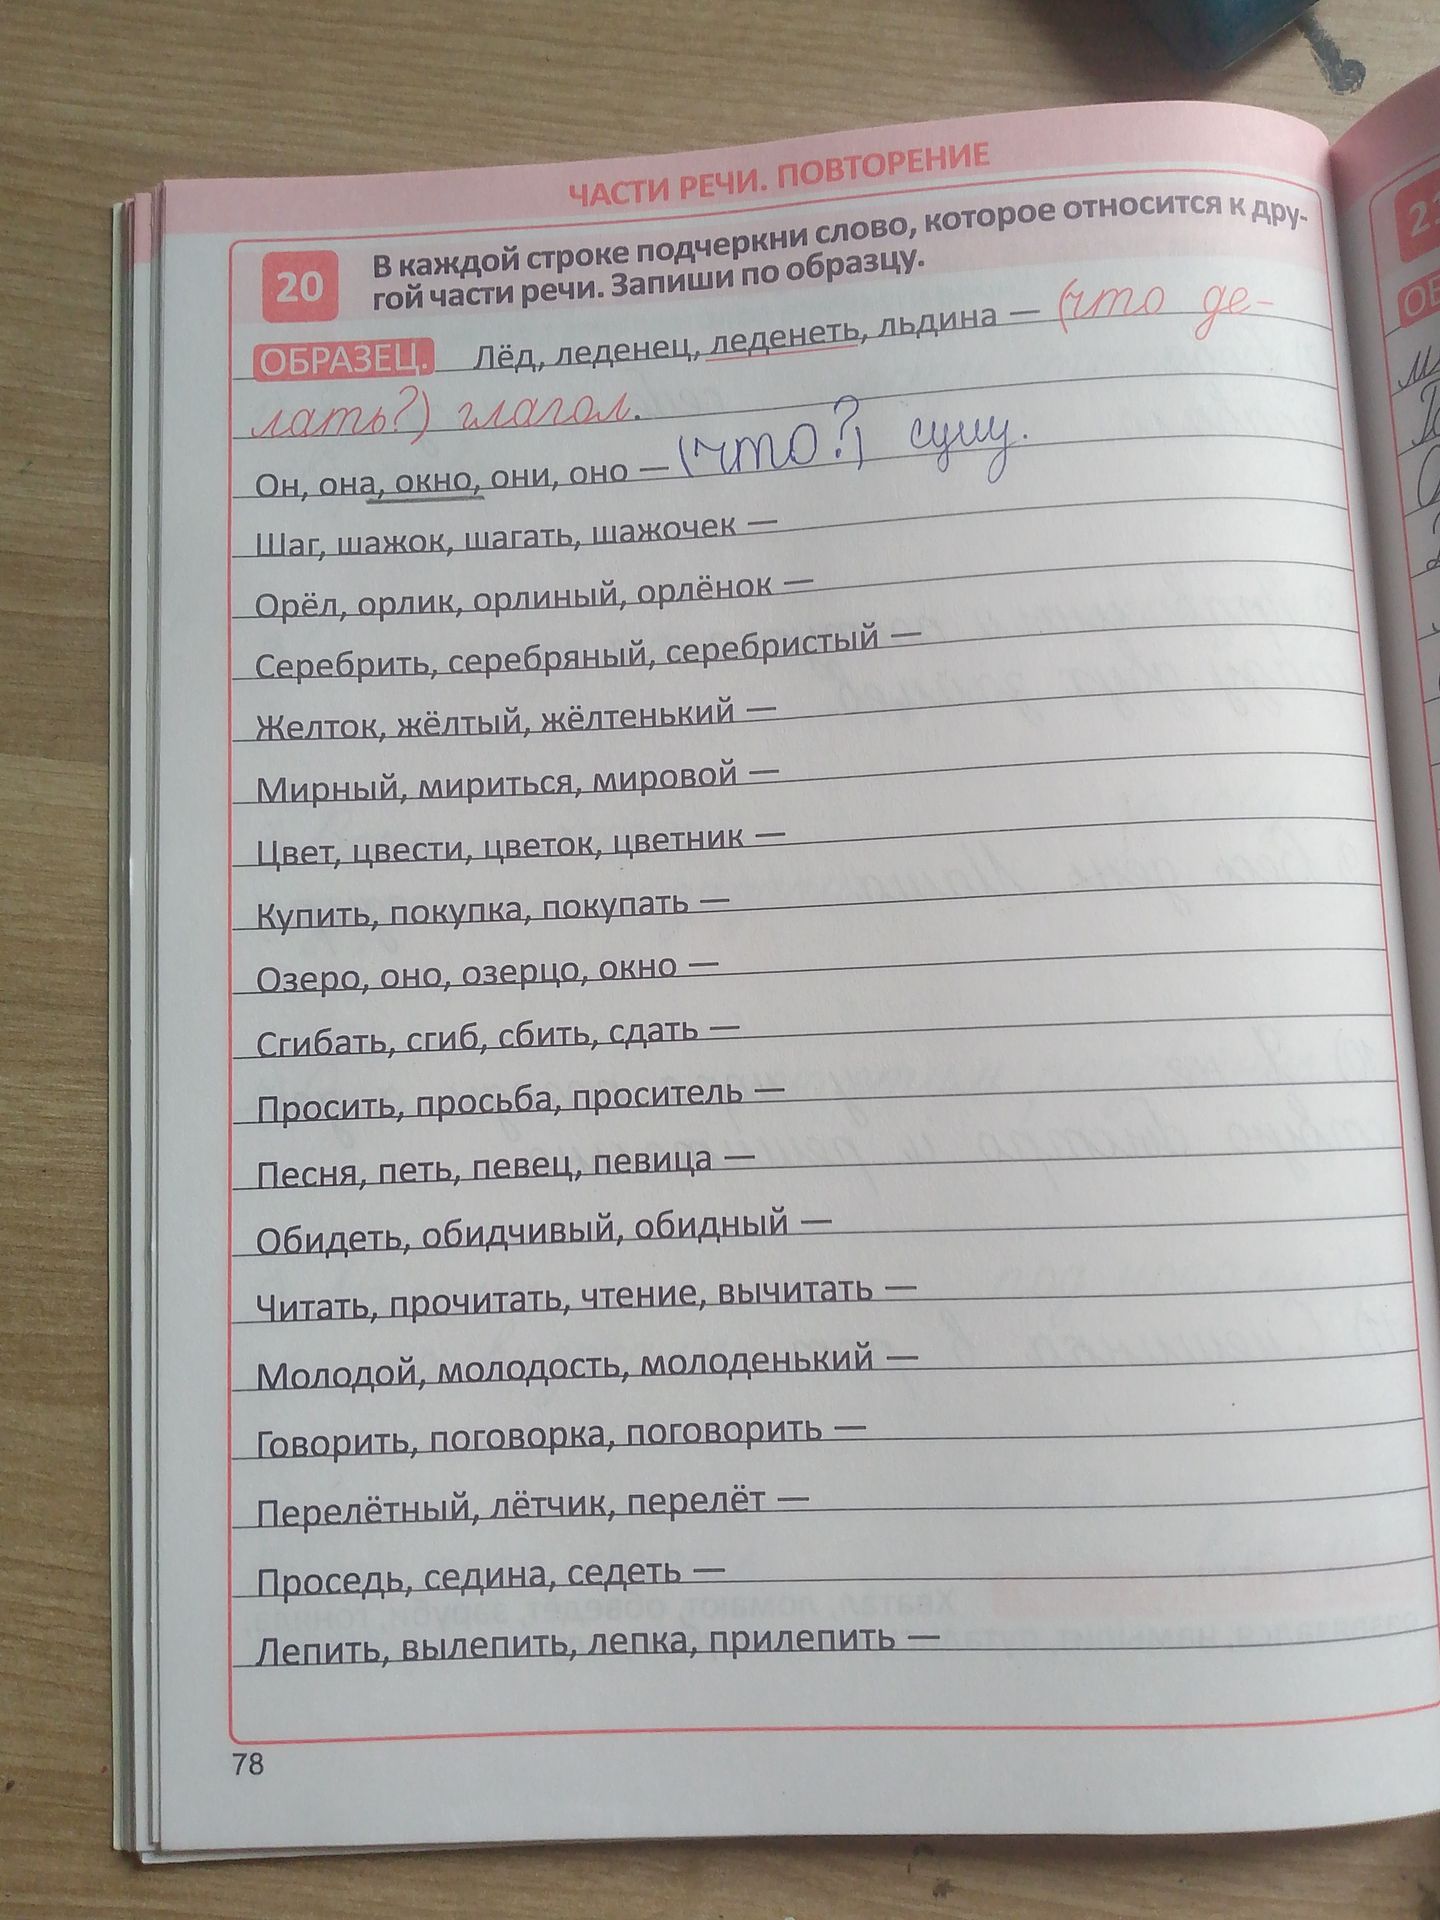 ЧАСТИ РЕЧИ. ПОВТОРЕНИЕ
20 В каждой строке подчеркни слово, которое относится к дру-
гой части речи. Запиши по образцу.
ОБРАЗЕЦ. Лёд, леденец, леденеть, льдина — (что де-
лать?) глагол.
Он, она, окно, они, оно — (что?) сущ.
Шаг, шажок, шагать, шажочек —
Орёл, орлик, орлиный, орлёнок —
Серебрить, серебряный, серебристый —
Желток, жёлтый, жёлтенький —
Мирный, мириться, мировой —
Цвет, цвести, цветок, цветник —
Купить, покупка, покупать —
Озеро, оно, озерцо, окно —
Сгибать, сгиб, сбить, сдать —
Просить, просьба, проситель —
Песня, петь, певец, певица —
Обидеть, обидчивый, обидный —
Читать, прочитать, чтение, вычитать —
Молодой, молодость, молоденький —
Говорить, поговорка, поговорить —
Перелётный, лётчик, перелёт —
Проседь, седина, седеть —
Лепить, вылепить, лепка, прилепить —
78